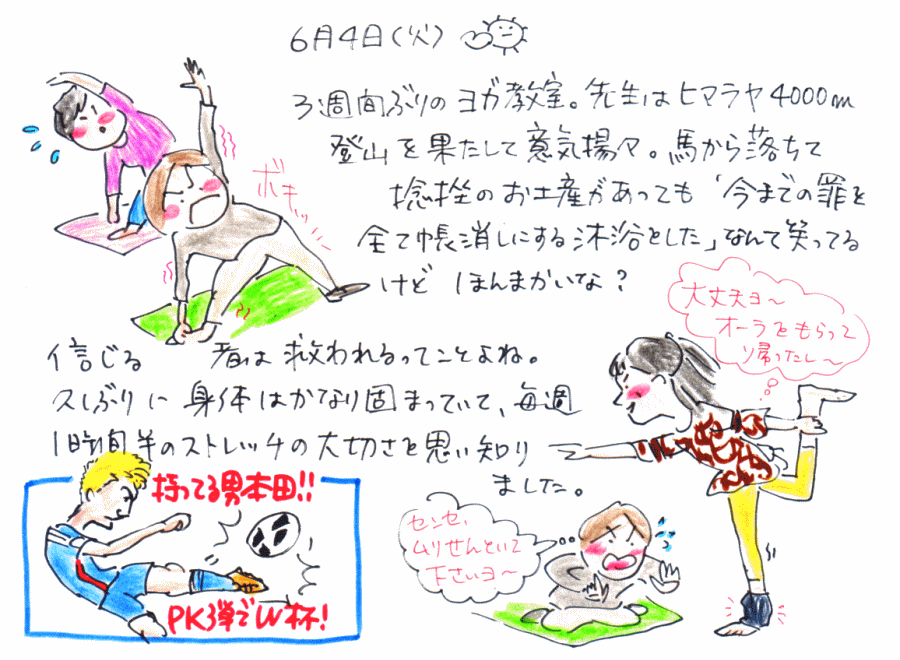 6月4日(火)
3週間ぶりのヨガ教室。先生はヒマラヤ4000m
登山を果たして意気揚々。馬から落ちて
捻挫のお土産があっても「今までの罪を
全て帳消しにする沐浴をした」なんて笑ってる
けど ほんまかいな?
ボキッ
大丈夫ヨ～
オーラをもらって
帰ったし～
信じる 者は救われるってことよね。
久しぶりに身体はかなり固まっていて、毎週
1時間半のストレッチの大切さを思い知り
ました。
持ってる男本田!!
PK弾でW杯!
センセ、
ムリせんといて
下さいヨ～